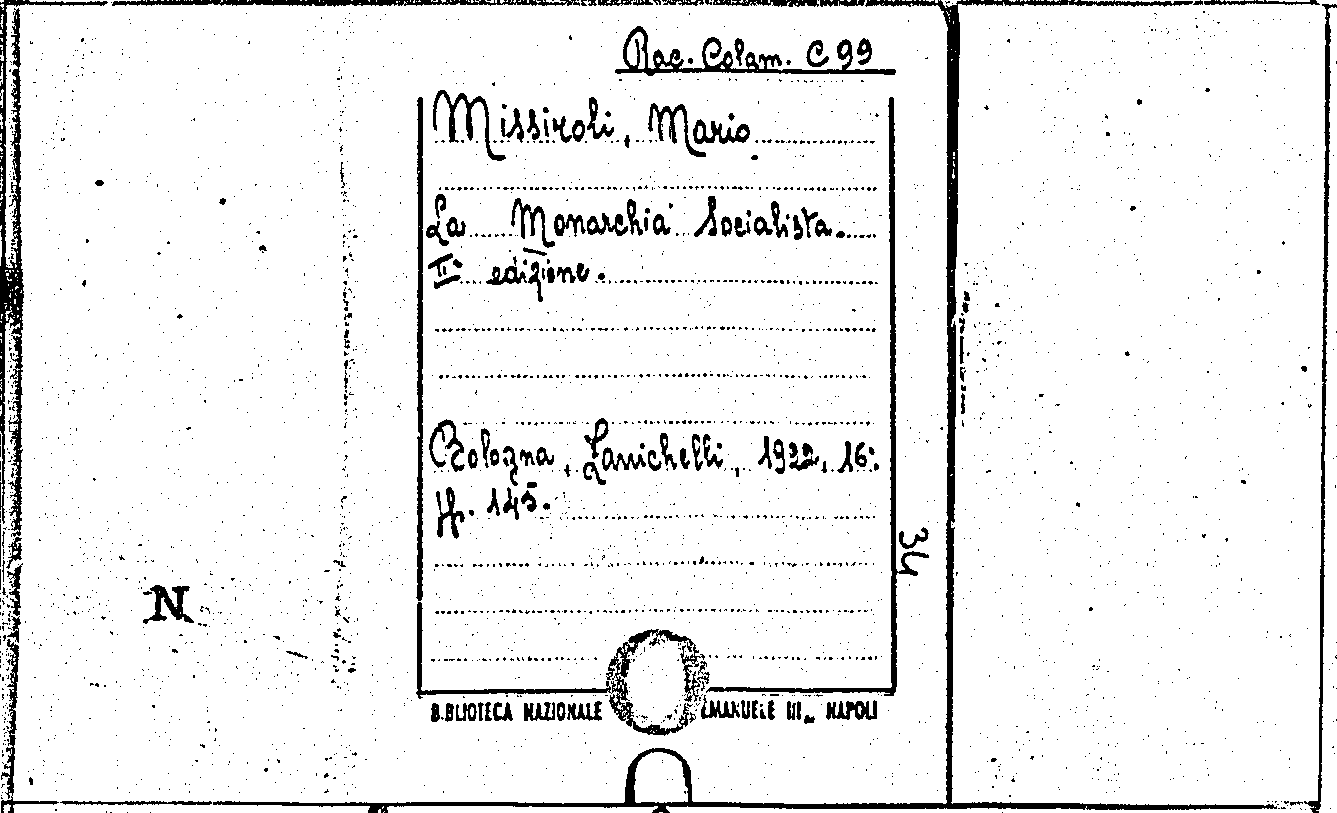 Rac. Colam. C 99
Missiroli, Mario.
La Monarchia Socialista.
IIª edizione.
Bologna, Zanichelli, 1922, 16º.
pp. 145.
34
N
B.BLIOTECA NAZIONALE EMANUELE III - NAPOLI